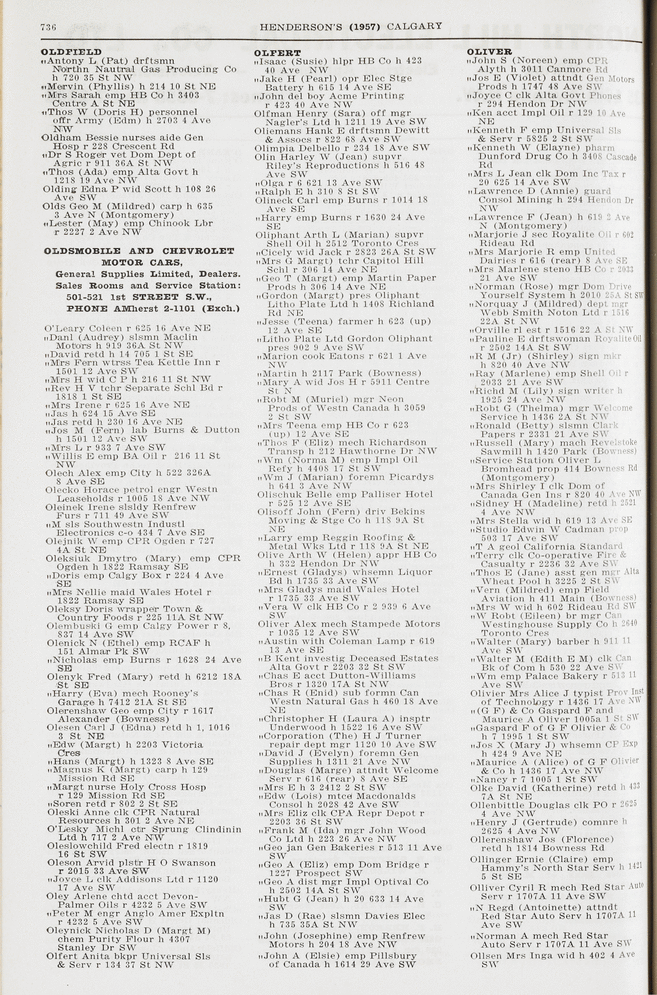 736
HENDERSON'S (1957) CALGARY
OLDFIELD
"Antony L (Pat) drftsmn
Northn Nautral Gas Producing Co
h 720 35 St NW
"Mervin (Phyllis) h 214 10 St NE
"Mrs Sarah emp HB Co h 3403
Centre A St NE
"Thos W (Doris H) personnel
offr Army (Edm) h 2703 4 Ave
NW
Oldham Bessie nurses aide Gen
Hosp r 228 Crescent Rd
"Dr S Roger vet Dom Dept of
Agric r 911 36A St NW
"Thos (Ada) emp Alta Govt h
1218 19 Ave NW
Olding Edna P wid Scott h 108 26
Ave SW
Olds Geo M (Mildred) carp h 635
3 Ave N (Montgomery)
"Lester (May) emp Chinook Lbr
r 2227 2 Ave NW
OLDSMOBILE AND CHEVROLET
MOTOR CARS,
General Supplies Limited, Dealers.
Sales Rooms and Service Station:
501-521 1st STREET S.W.,
PHONE AMherst 2-1101 (Exch.)
O'Leary Coleen r 625 16 Ave NE
"Danl (Audrey) slsmn Maclin
Motors h 919 36A St NW
"David retd h 14 705 1 St SE
"Mrs Fern wtrss Tea Kettle Inn r
1501 12 Ave SW
"Mrs H wid C P h 216 11 St NW
"Rev H V tchr Separate Schl Bd r
1818 1 St SE
"Mrs Irene r 625 16 Ave NE
"Jas h 624 15 Ave SE
"Jas retd h 230 16 Ave NE
"Jos M (Fern) lab Burns & Dutton
h 1501 12 Ave SW
"Mrs L r 933 7 Ave SW
"Willis E emp BA Oil r 216 11 St
NW
Olech Alex emp City h 522 326A
8 Ave SE
Olecko Horace petrol engr Westn
Leaseholds r 1005 18 Ave NW
Oleinek Irene slsldy Renfrew
Furs r 711 49 Ave SW
"M sls Southwestn Industl
Electronics c-o 434 7 Ave SE
Olejnik W emp CPR Ogden r 727
4A St NE
Oleksiuk Dmytro (Mary) emp CPR
Ogden h 1822 Ramsay SE
"Doris emp Calgy Box r 224 4 Ave
SE
"Mrs Nellie maid Wales Hotel r
1822 Ramsay SE
Oleksy Doris wrapper Town &
Country Foods r 225 11A St NW
Olembuski G emp Calgy Power r 8,
837 14 Ave SW
Olenick N (Ethel) emp RCAF h
151 Almar Pk SW
"Nicholas emp Burns r 1628 24 Ave
SE
Olenyk Fred (Mary) retd h 6212 18A
St SE
"Harry (Eva) mech Rooney's
Garage h 7412 21A St SE
Olerenshaw Geo emp City r 1617
Alexander (Bowness)
Olesen Carl J (Edna) retd h 1, 1016
3 St NE
"Edw (Margt) h 2203 Victoria
Cres
"Hans (Margt) h 1323 8 Ave SE
"Magnus K (Margt) carp h 129
Mission Rd SE
"Margt nurse Holy Cross Hosp
r 129 Mission Rd SE
"Soren retd r 802 2 St SE
Oleski Anne clk CPR Natural
Resources h 301 2 Ave NE
O'Lesky Michl ctr Sprung Clindinin
Ltd h 717 2 Ave NW
Oleslowchild Fred electn r 1819
16 St SW
Oleson Arvid plstr H O Swanson
r 2015 33 Ave SW
"Joyce L clk Addisons Ltd r 1120
17 Ave SW
Oley Arlene chtd acct Devon-
Palmer Oils r 4232 5 Ave SW
"Peter M engr Anglo Amer Expltn
r 4232 5 Ave SW
Oleynick Nicholas D (Margt M)
chem Purity Flour h 4307
Stanley Dr SW
Olfert Anita bkpr Universal Sls
& Serv r 134 37 St NW
OLFERT
"Isaac (Susie) hlpr HB Co h 423
40 Ave NW
"Jake H (Pearl) opr Elec Stge
Battery h 615 14 Ave SE
"John del boy Acme Printing
r 423 40 Ave NW
Olfman Henry (Sara) off mgr
Nagler's Ltd h 1211 19 Ave SW
Oliemans Hank E drftsmn Dewitt
& Assocs r 822 68 Ave SW
Olimpia Delbello r 234 18 Ave SW
Olin Harley W (Jean) supvr
Riley's Reproductions h 516 48
Ave SW
"Olga r 6 621 13 Ave SW
"Ralph E h 310 8 St SW
Olineck Carl emp Burns r 1014 18
Ave SE
"Harry emp Burns r 1630 24 Ave
SE
Oliphant Arth L (Marian) supvr
Shell Oil h 2512 Toronto Cres
"Cicely wid Jack r 2823 26A St SW
"Mrs G Margt) tchr Capitol Hill
Schl r 306 14 Ave NE
"Geo T (Margt) emp Martin Paper
Prods h 306 14 Ave NE
"Gordon (Margt) pres Oliphant
Litho Plate Ltd h 1408 Richland
Rd NE
"Jesse (Teena) farmer h 623 (up)
12 Ave SE
"Litho Plate Ltd Gordon Oliphant
pres 902 9 Ave SW
"Marion cook Eatons r 621 1 Ave
NW
"Martin h 2117 Park (Bowness)
"Mary A wid Jos H r 5911 Centre
St N
"Robt M (Muriel) mgr Neon
Prods of Westn Canada h 3059
2 St SW
"Mrs Teena emp HB Co r 623
(up) 12 Ave SE
"Thos F (Eliz) mech Richardson
Transp h 212 Hawthorne Dr NW
"Wm (Norma M) emp Impl Oil
Refy h 4408 17 St SW
"Wm J (Marian) foremn Picardys
h 641 3 Ave NW
Olischuk Belle emp Palliser Hotel
r 525 12 Ave SE
Olisoff John (Fern) driv Bekins
Moving & Stge Co h 118 9A St
NE
"Larry emp Reggin Roofing &
Metal Wks Ltd r 118 9A St NE
Olive Arth W (Helen) appr HB Co
h 332 Hendon Dr NW
"Ernest (Gladys) whsemn Liquor
Bd h 1735 33 Ave SW
"Mrs Gladys maid Wales Hotel
r 1735 33 Ave SW
"Vera W clk HB Co r 2 939 6 Ave
SW
Oliver Alex mech Stampede Motors
r 1035 12 Ave SW
"Austin with Coleman Lamp r 619
13 Ave SE
"B Kent investig Deceased Estates
Alta Govt r 2203 32 St SW
"Chas E acct Dutton-Williams
Bros r 1320 17A St NW
"Chas R (Enid) sub formn Can
Westn Natural Gas h 460 18 Ave
NE
"Christopher H (Laura A) insptr
Underwood h 1522 16 Ave SW
"Corporation (The) H J Turner
repair dept mgr 1120 10 Ave SW
"David J (Evelyn) foremn Gen
Supplies h 1311 21 Ave NW
"Douglas (Marge) attndt Welcome
Serv r 616 (rear) 8 Ave SE
"Mrs E h 3 2412 2 St SW
"Edw (Lois) mtce Macdonalds
Consol h 2028 42 Ave SW
"Mrs Eliz clk CPA Repr Depot r
2203 36 St SW
"Frank M (Ida) mgr John Wood
Co Ltd h 223 26 Ave NW
"Geo jan Gen Bakeries r 513 11 Ave
SW
"Geo A (Eliz) emp Dom Bridge r
1227 Prospect SW
"Geo A dist mgr Impl Optival Co
h 2502 14A St SW
"Hubt G (Jean) h 20 633 14 Ave
SW
"Jas D (Rae) slsmn Davies Elec
h 735 35A St NW
"John (Josephine) emp Renfrew
Motors h 204 18 Ave NW
"John A (Elsie) emp Pillsbury
of Canada h 1614 29 Ave SW
OLIVER
"John S (Noreen) emp CPR
Alyth h 3011 Canmore Rd
"Jos E (Violet) attndt Gen Motors
Prods h 1747 48 Ave SW
"Joyce C clk Alta Govt Phones
r 294 Hendon Dr NW
"Ken acct Impl Oil r 129 10 Ave
NE
"Kenneth F emp Universal Sls
& Serv r 5825 2 St SW
"Kenneth W (Elayne) pharm
Dunford Drug Co h 3408 Cascade
Rd
"Mrs L Jean clk Dom Inc Tax r
20 625 14 Ave SW
"Lawrence D (Annie) guard
Consol Mining h 294 Hendon Dr
NW
"Lawrence F (Jean) h 619 2 Ave
N (Montgomery)
"Marjorie J sec Royalite Oil r 602
Rideau Rd
"Mrs Marjorie R emp United
Dairies r 616 (rear) 8 Ave SE
"Mrs Marlene steno HB Co r 2033
21 Ave SW
"Norman (Rose) mgr Dom Drive
Yourself System h 2010 25A St SW
"Norquay J (Mildred) dept mgr
Webb Smith Noton Ltd r 1516
22A St NW
"Orville rl est r 1516 22 A St NW
"Pauline E drftswoman Royalite Oil
r 2502 14A St SW
"R M (Jr) (Shirley) sign mkr
h 820 40 Ave NW
"Ray (Marlene) emp Shell Oil r
2033 21 Ave SW
"Richd M (Lily) sign writer h
1925 24 Ave NW
"Robt G (Thelma) mgr Welcome
Service h 1436 2A St NW
"Ronald (Betty) slsmn Clark
Papers r 2331 21 Ave SW
"Russell (Mary) mach Revelstoke
Sawmill h 1420 Park (Bowness)
"Service Station Oliver L
Bromhead prop 414 Bowness Rd
(Montgomery)
"Mrs Shirley I clk Dom of
Canada Gen Ins r 820 40 Ave NW
"Sidney H (Madeline) retd h 2521
4 Ave NW
"Mrs Stella wid h 619 13 Ave SE
"Studio Edwin W Cadman prop
503 17 Ave SW
"T A geol California Standard
"Terry clk Co-operative Fire &
Casualty r 2236 32 Ave SW
"Thos E (Jane) asst gen mgr Alta
Wheat Pool h 3225 2 St SW
"Vern (Mildred) emp Field
Aviation h 411 Main (Bowness)
"Mrs W wid h 602 Rideau Rd SW
"W Robt (Eileen) br mgr Can
Westinghouse Supply Co h 2640
Toronto Cres
"Walter (Mary) barber h 911 11
Ave SW
"Walter M (Edith E M) clk Can
Bk of Com h 530 22 Ave SW
"Wm emp Palace Bakery r 513 11
Ave SW
Olivier Mrs Alice J typist Prov Inst
of Technology r 1436 17 Ave NW
"(G F) & Co Gaspard F and
Maurice A Oliver 1005a 1 St SW
"Gaspard F of G F Olivier & Co
h 7 1995 1 St SW
"Jos X (Mary J) whsemn CP Exp
h 424 9 Ave NE
"Maurice A (Alice) of G F Olivier
& Co h 1436 17 Ave NW
"Nancy r 7 1005 1 St SW
Olke David (Katherine) retd h 433
7A St NE
Ollenbittle Douglas clk PO r 2625
4 Ave NW
"Henry J (Gertrude) comnre h
2625 4 Ave NW
Ollerenshaw Jos (Florence)
retd h 1814 Bowness Rd
Ollinger Ernie (Claire) emp
Hammy's North Star Serv h 1421
5 St SE
Olliver Cyril R mech Red Star Auto
Serv r 1707A 11 Ave SW
"N Regd (Antoinette) attndt
Red Star Auto Serv h 1707A 11
Ave SW
"Norman A mech Red Star
Auto Serv r 1707A 11 Ave SW
Ollsen Mrs Inga wid h 402 4 Ave
SW